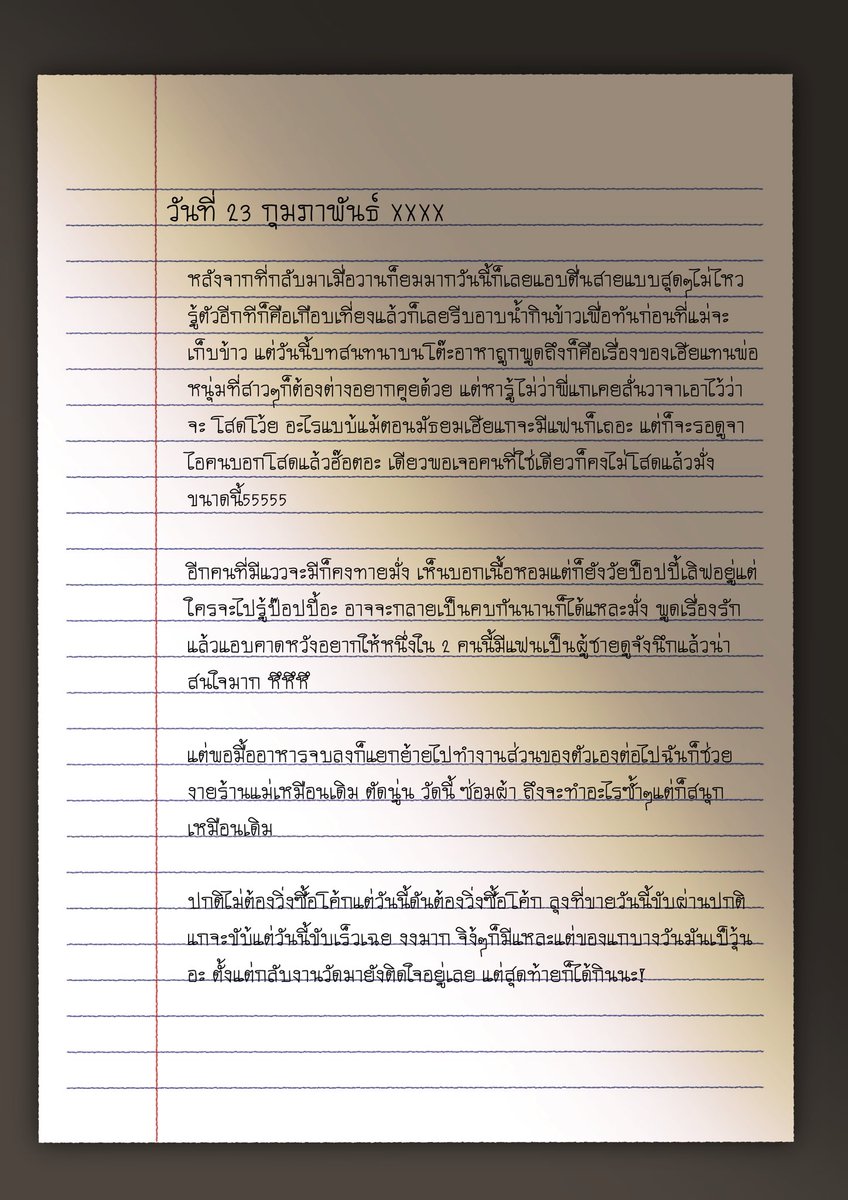 วันที่ 23 กุมภาพันธ์ xxxx
หลังจากที่กลับมาเมื่อวานก็ยมมากวันนี้ก็เลยแอบตื่นสายแบบสุดๆไม่ไหว
รู้ตัวอีกทีก็คือเกือบเที่ยงแล้วก็เลยรีบอาบน้ำกินข้าวเพื่อทันก่อนที่แม่จะ
เก็บข้าว แต่วันนี้บทสนทนาบนโต๊ะอาหาถูกพูดถึงก็คือเรื่องของเฮียแทนพ่อ
หนุ่มที่สาวๆก็ต้องต่างอยากคุยด้วย แต่หารู้ไม่ว่าพี่แกเคยลั่นวาจาเอาไว้ว่า
จะ โสดโว้ย อะไรแบบ้แม้ตอนมัธยมเฮียแกจะมีแฟนก็เถอะ แต่ก็จะรอดูจา
ไอคนบอกโสดแล้วฮ๊อตอะ เดียวพอเจอคนที่ใช่เดียวก็คงไม่โสดแล้วมั่ง
ขนาดนี้55555
อีกคนที่มีแววจะมีก็คงทายมั่ง เห็นบอกเนื้อหอมแต่ก็ยังวัยป็อปปี้เลิฟอยู่แต่
ใครจะไปรู้ป๊อปปี้อะ อาจจะกลายเป็นคบกันนานก็ได้แหละมั่ง พูดเรื่องรัก
แล้วแอบคาดหวังอยากให้หนึ่งใน 2 คนนี้มีแฟนเป็นผู้ชายดูจังนึกแล้วน่า
สนใจมาก หึหึหึ
แต่พอมื้ออาหารจบลงก็แยกย้ายไปทำงานส่วนของตัวเองต่อไปฉันก็ช่วย
งายร้านแม่เหมือนเดิม ตัดนู่น วัดนี้ ซ่อมผ้า ถึงจะทำอะไรซ้ำๆแต่ก็สนุก
เหมือนเดิม
ปกติไม่ต้องวิ่งซื้อโค้กแต่วันนี้ดันต้องวิ่งซื้อโค้ก ลุงที่ขายวันนี้ขับผ่านปกติ
แกจะขับ้แต่วันนี้ขับเร็วเฉย งงมาก จิง้ๆก็มีแหละแต่ของแกบางวันมันเป้วุ้น
อะ ตั้งแต่กลับงานวัดมายังติดใจอยู่เลย แต่สุดท้ายก็ได้กินนะ!